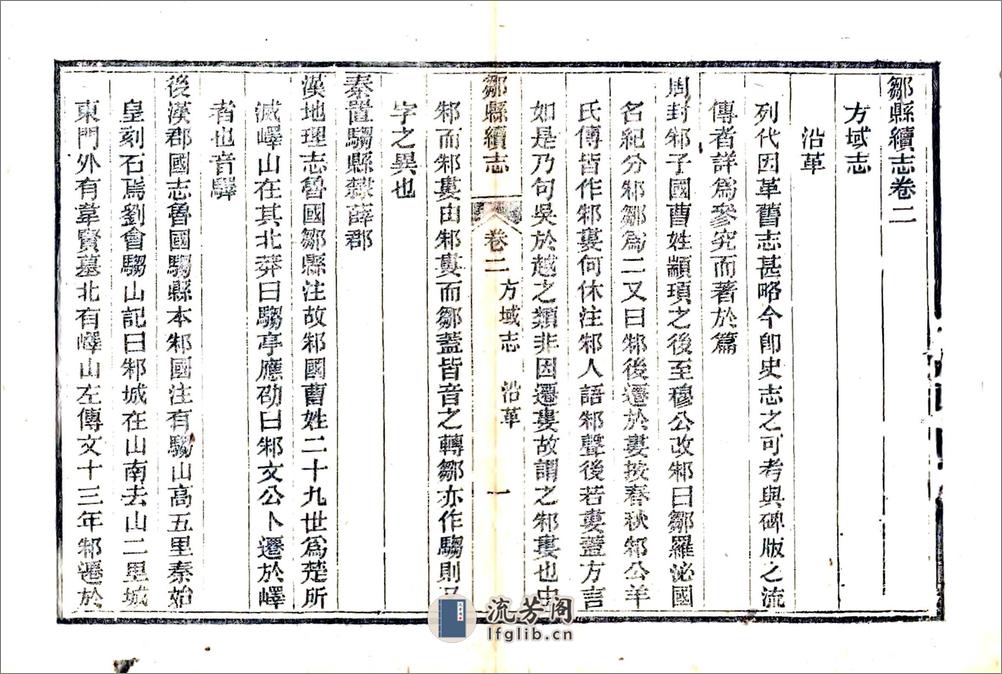 鄒縣續志卷二
方域志
沿革
列代因革舊志甚略今卽史志之可考與碑版之流
傳者詳爲參究而著於篇
周封邾子國曹姓顓頊之後至穆公改邾曰鄒羅泌國
名紀分邾鄒爲二又曰邾後遷於婁按春秋邾公羊
氏傳皆作邾婁何休注邾人語邾聲後若婁蓋方言
如是乃句吳於越之類非因遷婁故謂之邾婁也由
鄒縣續志
卷二
方域志
沿革
一
邾而邾婁由邾婁而鄒蓋皆音之轉鄒亦作騶則又
字之異也
秦置騶縣隸薛郡
漢地理志魯國鄒縣注故邾國曹姓二十九世爲楚所
滅嶧山在其北莽曰騶亭應劭曰邾文公卜遷於嶧
者也音驛
後漢郡國志魯國騶縣本邾國注有騶山高五里秦始
皇刻石焉劉會騶山記曰邾城在山南去山二里城
東門外有韋賢墓北有嶧山左傳文十三年邾遷於
流芳阁
lfglib.cn